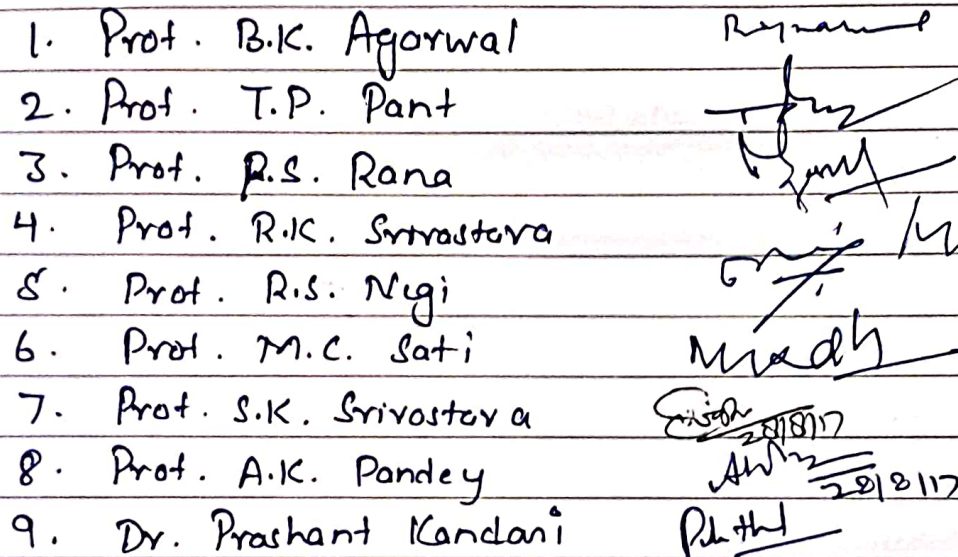 1. Prof. B.K. Agarwal
2. Prof. T.P. Pant
3. Prof. R.S. Rana
4. Prof. R.K. Srivastava
5. Prof. R.S. Negi
6. Prof. M.C. Sati
7. Prof. S.K. Srivastava 28/8/17
8. Prof. A.K. Pandey 28/8/17
9. Dr. Prashant Kandari